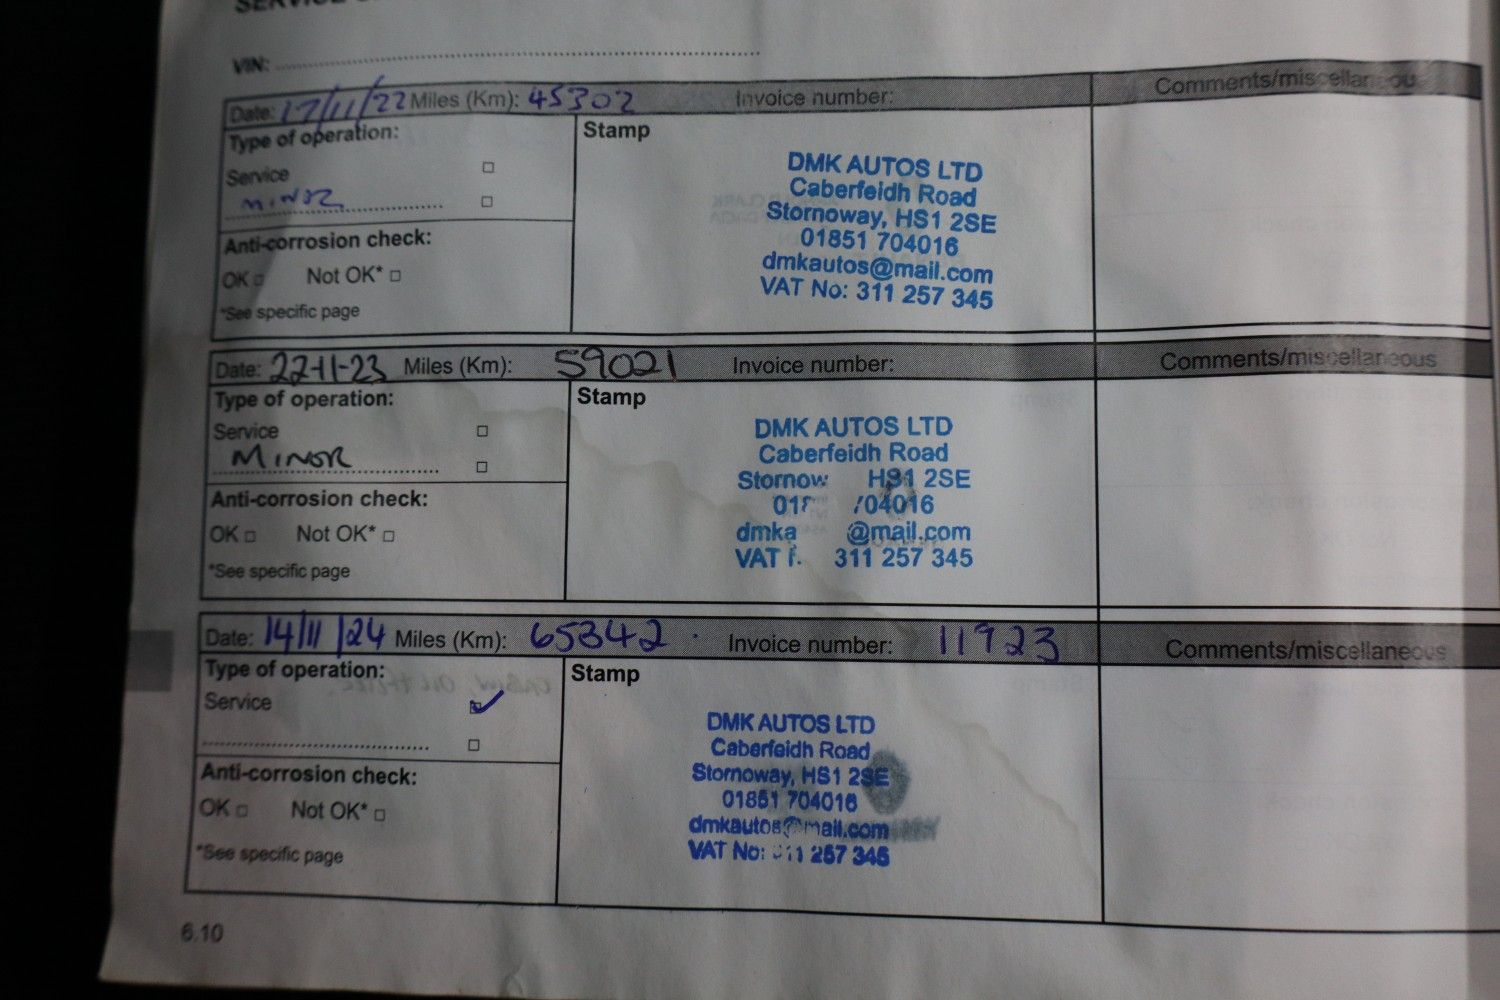 VIN:
Date: 17/11/22 Miles (Km): 45302 Invoice number: Comments/miscellaneous
Type of operation:
Stamp
Service
MINOR
Anti-corrosion check:
OK Not OK*
*See specific page
DMK AUTOS LTD
Caberfeidh Road
Stornoway, HS1 2SE
01851 704016
dmkautos@mail.com
VAT No: 311 257 345
Date: 22-11-23 Miles (Km): 59021 Invoice number: Comments/miscellaneous
Type of operation:
Stamp
Service
MINOR
Anti-corrosion check:
OK Not OK*
*See specific page
DMK AUTOS LTD
Caberfeidh Road
Stornow HS1 2SE
018 704016
dmka @mail.com
VAT 311 257 345
Date: 14/11/24 Miles (Km): 65342 Invoice number: 11923 Comments/miscellaneous
Type of operation:
Stamp
Service
Anti-corrosion check:
OK Not OK*
*See specific page
DMK AUTOS LTD
Caberfeidh Road
Stornoway, HS1 2SE
01851 704016
dmkautos@mail.com
VAT No: 311 257 345
6.10